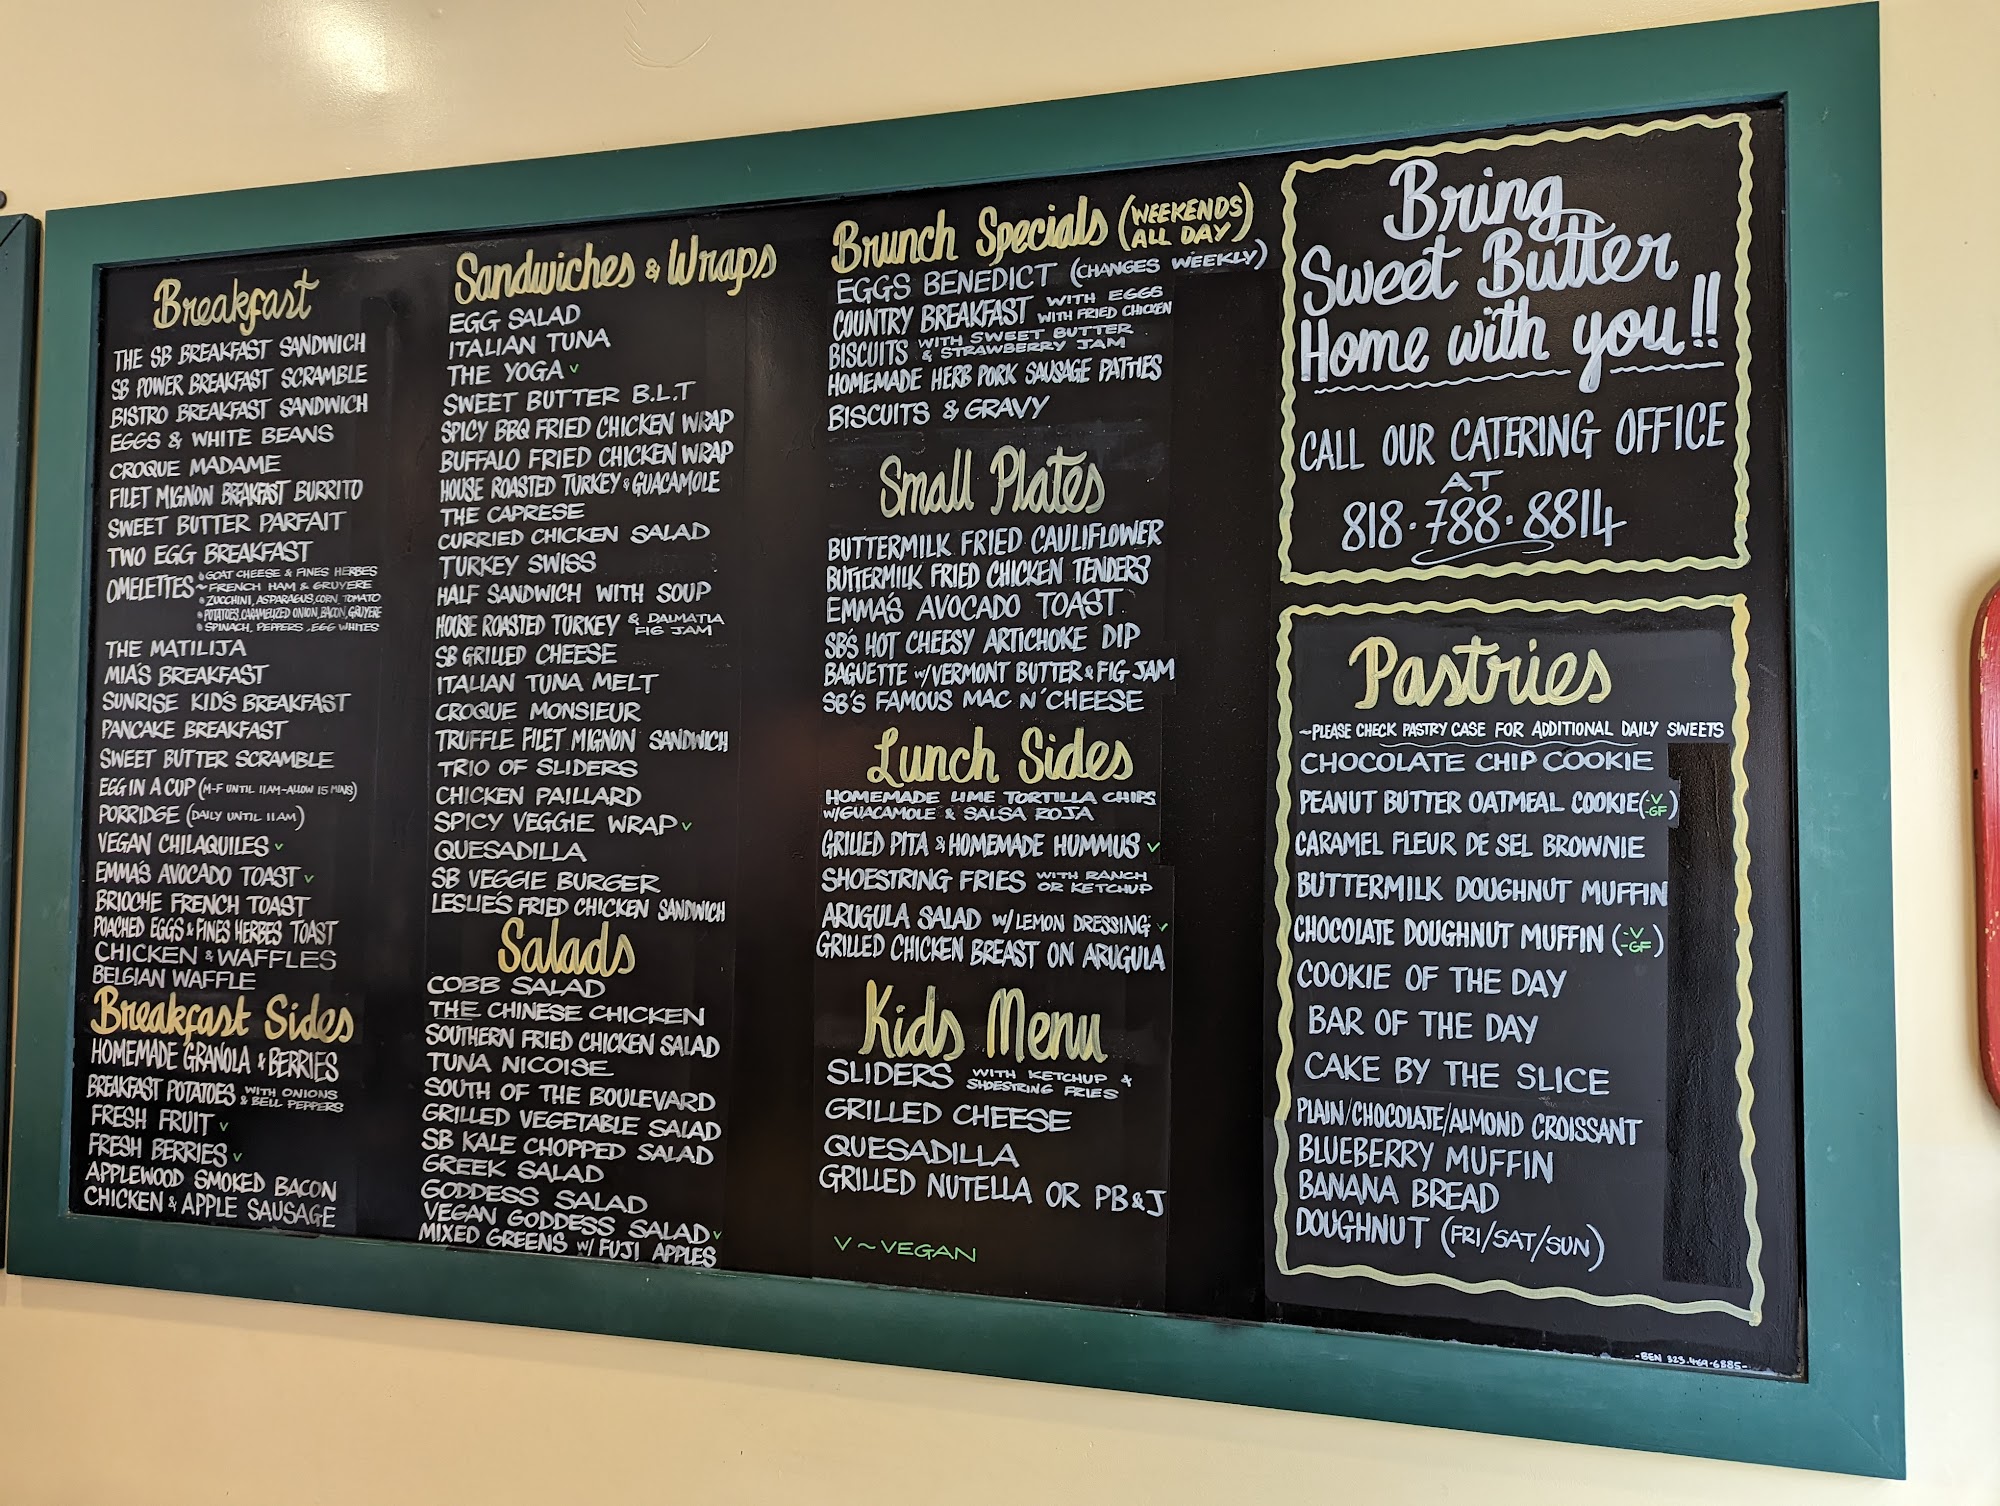 Breakfast
THE SB BREAKFAST SANDWICH
SB POWER BREAKFAST SCRAMBLE
BISTRO BREAKFAST SANDWICH
EGGS & WHITE BEANS
CROQUE MADAME
FILET MIGNON BREAKFAST BURRITO
SWEET BUTTER PARFAIT
TWO EGG BREAKFAST
OMELETTES
GOAT CHEESE & FINES HERBES
~ FRENCH HAM & GRUYERE
ZUCCHINI, ASPARAGUS, CORN, TOMATO
POTATOES, CARAMELIZED ONION, BACON, GRUYERE
SPINACH, PEPPERS, EGG WHITES
THE MATILIJA
MIA'S BREAKFAST
SUNRISE KID'S BREAKFAST
PANCAKE BREAKFAST
SWEET BUTTER SCRAMBLE
EGG IN A CUP (M-F UNTIL 11AM-ALLOW 15 MINS)
PORRIDGE (DAILY UNTIL 11AM)
VEGAN CHILAQUILES V
EMMA'S AVOCADO TOAST V
BRIOCHE FRENCH TOAST
POACHED EGGS & FINES HERBES TOAST
CHICKEN & WAFFLES
BELGIAN WAFFLE
Breakfast Sides
HOMEMADE GRANOLA & BERRIES
BREAKFAST POTATOES WITH ONIONS
& BELL PEPPERS
FRESH FRUIT V
FRESH BERRIES V
APPLEWOOD SMOKED BACON
CHICKEN & APPLE SAUSAGE
Sandwiches & Wraps
EGG SALAD
ITALIAN TUNA
THE YOGA V
SWEET BUTTER B.L.T
SPICY BBQ FRIED CHICKEN WRAP
BUFFALO FRIED CHICKEN WRAP
HOUSE ROASTED TURKEY & GUACAMOLE
THE CAPRESE
CURRIED CHICKEN SALAD
TURKEY SWISS
HALF SANDWICH WITH SOUP
HOUSE ROASTED TURKEY & DALMATIA
FIG JAM
SB GRILLED CHEESE
ITALIAN TUNA MELT
CROQUE MONSIEUR
TRUFFLE FILET MIGNON SANDWICH
TRIO OF SLIDERS
CHICKEN PAILLARD
SPICY VEGGIE WRAP V
QUESADILLA
SB VEGGIE BURGER
LESLIE'S FRIED CHICKEN SANDWICH
Salads
COBB SALAD
THE CHINESE CHICKEN
SOUTHERN FRIED CHICKEN SALAD
TUNA NICOISE
SOUTH OF THE BOULEVARD
GRILLED VEGETABLE SALAD
SB KALE CHOPPED SALAD
GREEK SALAD
GODDESS SALAD
VEGAN GODDESS SALAD V
MIXED GREENS W/ FUJI APPLES
Brunch Specials (WEEKENDS
ALL DAY)
EGGS BENEDICT (CHANGES WEEKLY)
COUNTRY BREAKFAST WITH EGGS
WITH FRIED CHICKEN
BISCUITS WITH SWEET BUTTER
& STRAWBERRY JAM
HOMEMADE HERB PORK SAUSAGE PATTIES
BISCUITS & GRAVY
Small Plates
BUTTERMILK FRIED CAULIFLOWER
BUTTERMILK FRIED CHICKEN TENDERS
EMMA'S AVOCADO TOAST
SB'S HOT CHEESY ARTICHOKE DIP
BAGUETTE W/VERMONT BUTTER & FIG JAM
SB'S FAMOUS MAC N' CHEESE
Lunch Sides
HOMEMADE LIME TORTILLA CHIPS
W/GUACAMOLE & SALSA ROJA
GRILLED PITA & HOMEMADE HUMMUS V
SHOESTRING FRIES WITH RANCH
OR KETCHUP
ARUGULA SALAD W/ LEMON DRESSING V
GRILLED CHICKEN BREAST ON ARUGULA
Kids Menu
SLIDERS WITH KETCHUP &
SHOESTRING FRIES
GRILLED CHEESE
QUESADILLA
GRILLED NUTELLA OR PB&J
V ~ VEGAN
Bring
Sweet Butter
Home with you!!
CALL OUR CATERING OFFICE
AT
818·788·8814
Pastries
~PLEASE CHECK PASTRY CASE FOR ADDITIONAL DAILY SWEETS
CHOCOLATE CHIP COOKIE
PEANUT BUTTER OATMEAL COOKIE (-V
-GF)
CARAMEL FLEUR DE SEL BROWNIE
BUTTERMILK DOUGHNUT MUFFIN
CHOCOLATE DOUGHNUT MUFFIN (-V
-GF)
COOKIE OF THE DAY
BAR OF THE DAY
CAKE BY THE SLICE
PLAIN/CHOCOLATE/ALMOND CROISSANT
BLUEBERRY MUFFIN
BANANA BREAD
DOUGHNUT (FRI/SAT/SUN)
-BEN 323·469·6885-